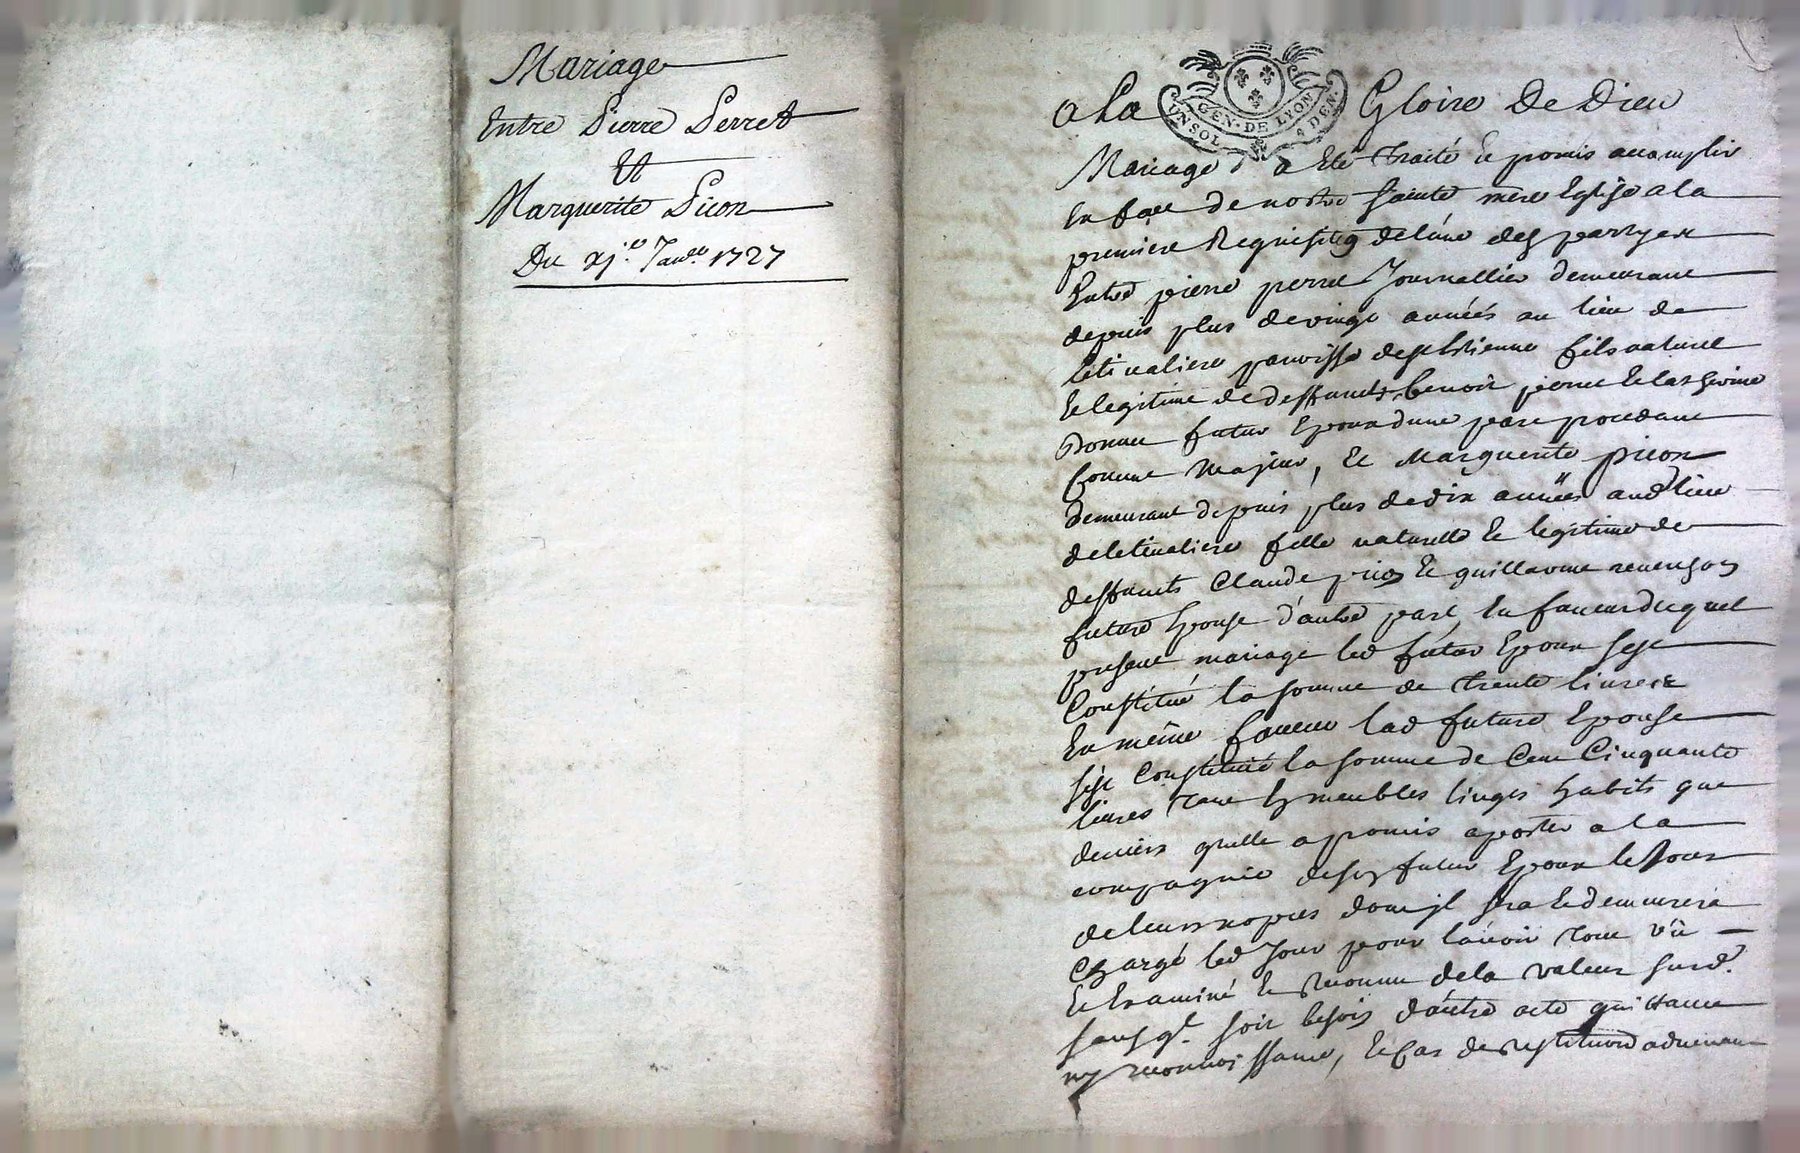 Mariage
Entre Pierre Perret
Et
Marguerite Picon
Du xj.e Janv.er 1727
GEN. DE LYON
UN SOL 4 DEN.
a La Gloire De Dieu
Mariage a Eté traité Et promis accomplir
En face de nostre sainte mere Eglise a la
premiere Requisition de lune des partyes
Entre pierre perret Journallier demeurant
depuis plus de vingt années au lieu de
paroisse de st Estienne fils naturel
Et legitime de deffunts benoit perret Et
futur Epoux dune part procedant
comme majeur, Et Marguerite picon
demeurant depuis plus de dix années aud lieu
fille naturelle Et legitime de
deffunts Claude picon Et guillaume
future Epouse d'autre part, En faveur duquel
present mariage led futur Epoux sest
Constitué la somme de trente livres Et
En même faveur lad future Epouse
sest Constitué la somme de Cent Cinquante
livres tant En meubles linges habits que
deniers quelle a promis aporter a la
compagnie de son futur Epoux le Jour
de leurs nopces dont jl sera Et demeurera
Chargé led Jour pour lavoir tout vû
Et Examiné Et Reconnu de la valeur susd.
sans ql. soit besoin dautre acte quittance
ny reconnoissance, Et Cas de Restitution advenant